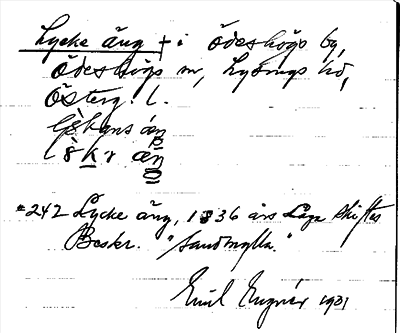 Lycke äng + i Ödeshögs by,
Ödeshögs sn, Lysings hd,
Österg. l.
*242 Lycke äng, 1836 års Laga skiftes
Beskr. "Sandmylla."
Emil 1931